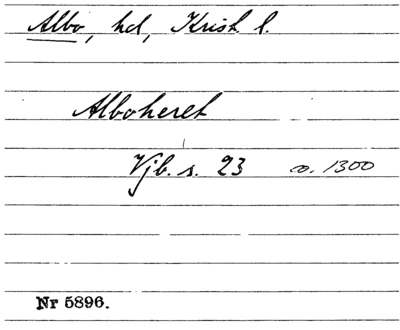 Albo, hd, Krist l.
Alboheret
Vjb. s. 23 co. 1300
Nr 5896.